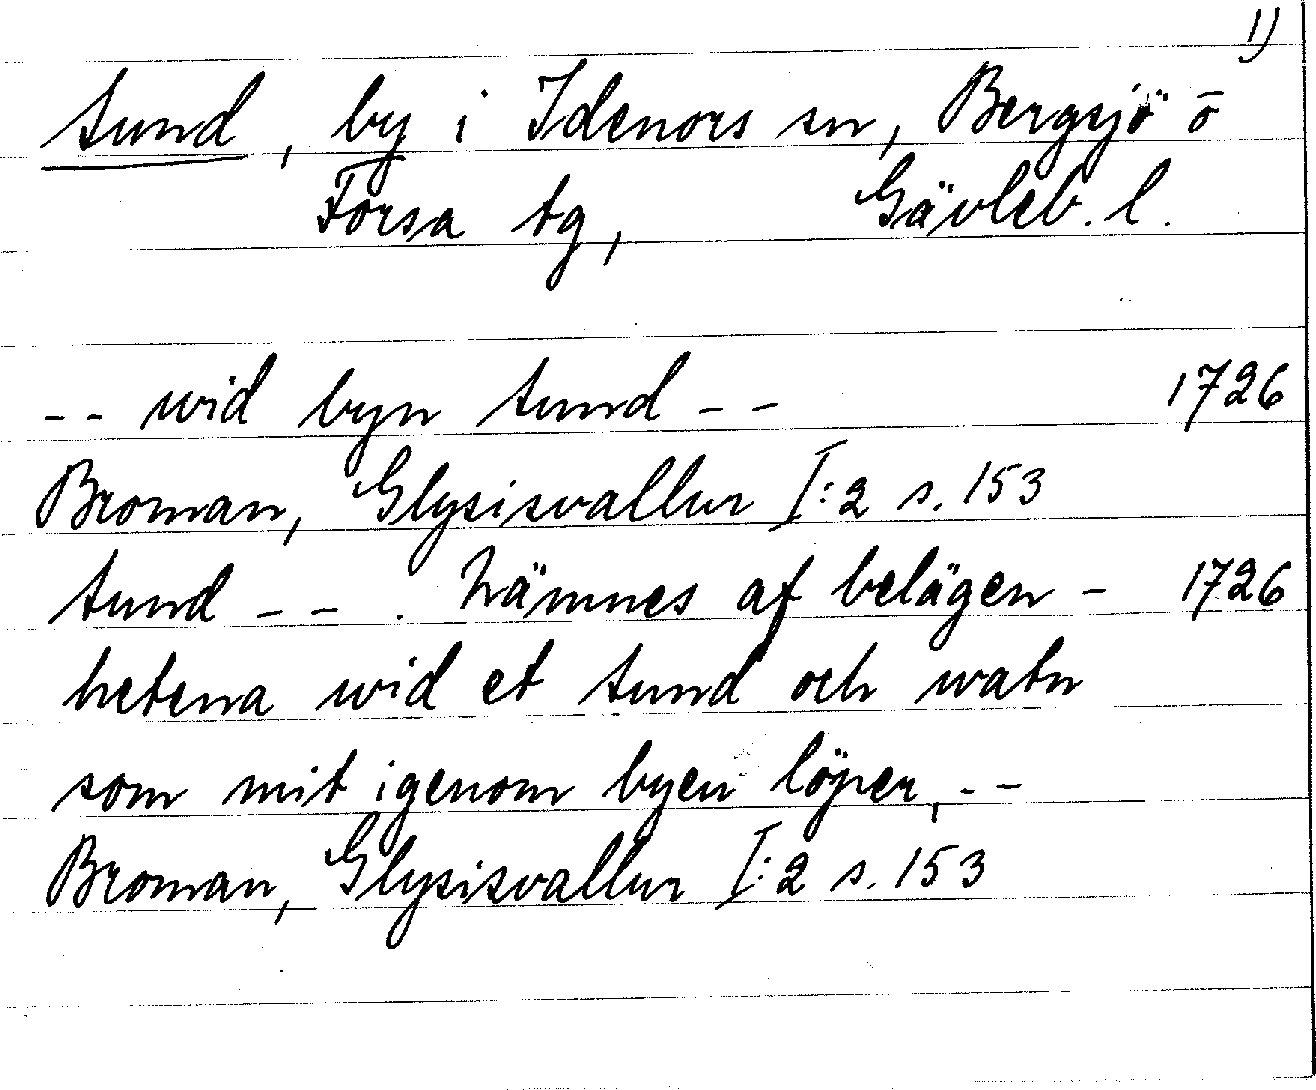 1)
Sund, by i Idenors sn, Bergsjö o
Forsa tg, Gävleb. l.
-- wid byn Sund -- 1726
Broman, Glysisvallur I:2 s. 153
Sund -- . Nämnes af belägen- 1726
hetena wid et sund och watn
som mit igenom byen löper, --
Broman, Glysisvallur I:2 s. 153